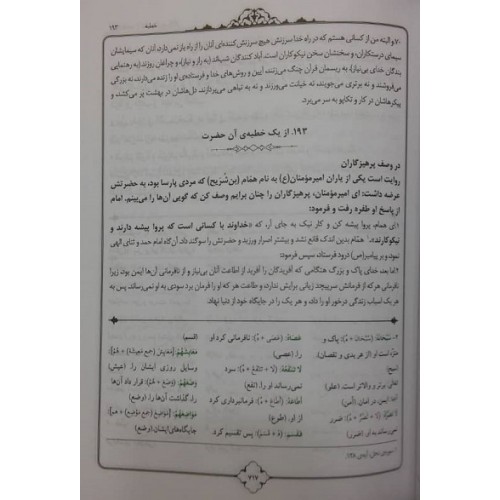 خطبه ۱۹۳
۷- و البته من از کسانی هستم که در راه خدا سرزنش هیچ سرزنش کننده‌ای آنان را از راه باز نمی‌دارد، آنان که سیمایشان
سیمای درستکاران، و سخنشان سخن نیکوکاران است. آباد کنندگان شب‌اند (به راز و نیاز)، و چراغان روزند (به رهنمایی
بندگان خدای بی‌نیاز)، به ریسمان قرآن چنگ می‌زنند، آیین و روش‌های خدا و فرستاده‌ی او را زنده می‌دارند، نه بزرگی
می‌فروشند و نه برتری می‌جویند نه خیانت می‌ورزند و نه به تباهی می‌پردازند. دل‌هاشان در بهشت پر می‌کشد، و
پیکرهاشان در کار و تکاپو به سر می‌برد.
۱۹۳. از یک خطبه‌ی آن حضرت
در وصف پرهیزگاران
روایت است یکی از یاران امیرمؤمنان(ع) به نام همّام (بن شُرَیح) که مردی پارسا بود، به حضرتش
عرضه داشت: ای امیرمؤمنان، پرهیزگاران را چنان برایم وصف کن که گویی آن‌ها را می‌بینم. امام
از پاسخ او طفره رفت و فرمود:
«ای همام، پروا پیشه کن و کار نیک به جای آر، که «خداوند با کسانی است که پروا پیشه دارند و
نیکوکارند». همّام بدین اندک قانع نشد و بیشتر اصرار ورزید و حضرتش را سوگند داد. آن‌گاه امام حمد و ثنای الهی
نمود و بر پیامبر(ص) درود فرستاد، سپس فرمود:
اما بعد، خدای پاک و بزرگ هنگامی که آفریدگان را آفرید از اطاعت آنان بی‌نیاز و از نافرمانی آن‌ها ایمن بود، زیرا
نافرمانی هر که از فرمانش سرپیچد زیانی برایش ندارد، و طاعت هر که او را فرمان برد سودی به او نمی‌رساند. پس به
هر یک اسباب زندگی درخور او را داد، و هر یک را در جایگاه خود از دنیا نهاد.
۲- سُبْحَانَهُ (سُبْحَان + هُ): پاک و
منزّه است او (از هر بدی و نقصان).
(سبح)
تعالی: برتر و والاتر است. (علو)
آمِناً: در امان. (أمن)
لا تَضُرُّهُ (لا + تَضُرُّ + هُ): ضرر
نمی‌رساند به او. (ضرر)
عَصَاهُ: (عَصَی + هُ): نافرمانی کرد او
را. (عصی)
لا تَنفَعُهُ: (لا + تَنفَعُ + هُ): سود
نمی‌رساند او را. (نفع)
أطاعَهُ: (أطاعَ + هُ): فرمانبرداری کرد
از او. (طوع)
فَقَسَمَ: (فَ + قَسَمَ): پس تقسیم کرد.
(قسم)
مَعَایِشَهُمْ: [مَعَایِش (جمع مَعیشَة) + هُمْ]:
وسایل روزی ایشان را. (عیش)
وَضَعَهُمْ: (وَضَعَ + هُمْ): قرار داد آن‌ها
را، گذاشت آن‌ها را. (وضع)
مَوَاضِعَهُمْ: [مَوَاضِع (جمع مَوضِع) + هم]:
جایگاه‌های ایشان. (وضع)
۱. سوره‌ی نحل، آیه‌ی ۱۲۸.
۷۱۷